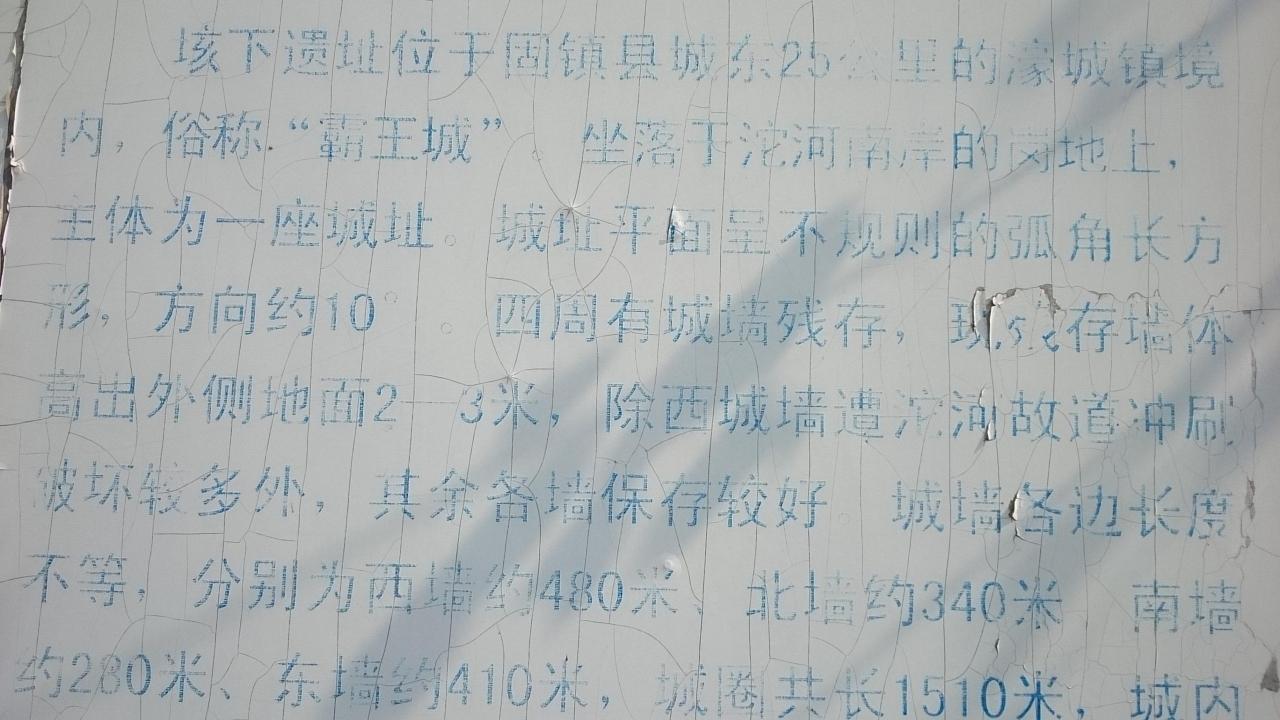 垓下遗址位于固镇县城东25公里的濠城镇境
内，俗称“霸王城”。坐落于沱河南岸的岗地上，
主体为一座城址。城址平面呈不规则的弧角长方
形，方向约10°。四周有城墙残存，现残存墙体
高出外侧地面2—3米，除西城墙遭沱河故道冲刷
破坏较多外，其余各墙保存较好。城墙各边长度
不等，分别为西墙约480米、北墙约340米 南墙
约280米、东墙约410米，城圈共长1510米，城内